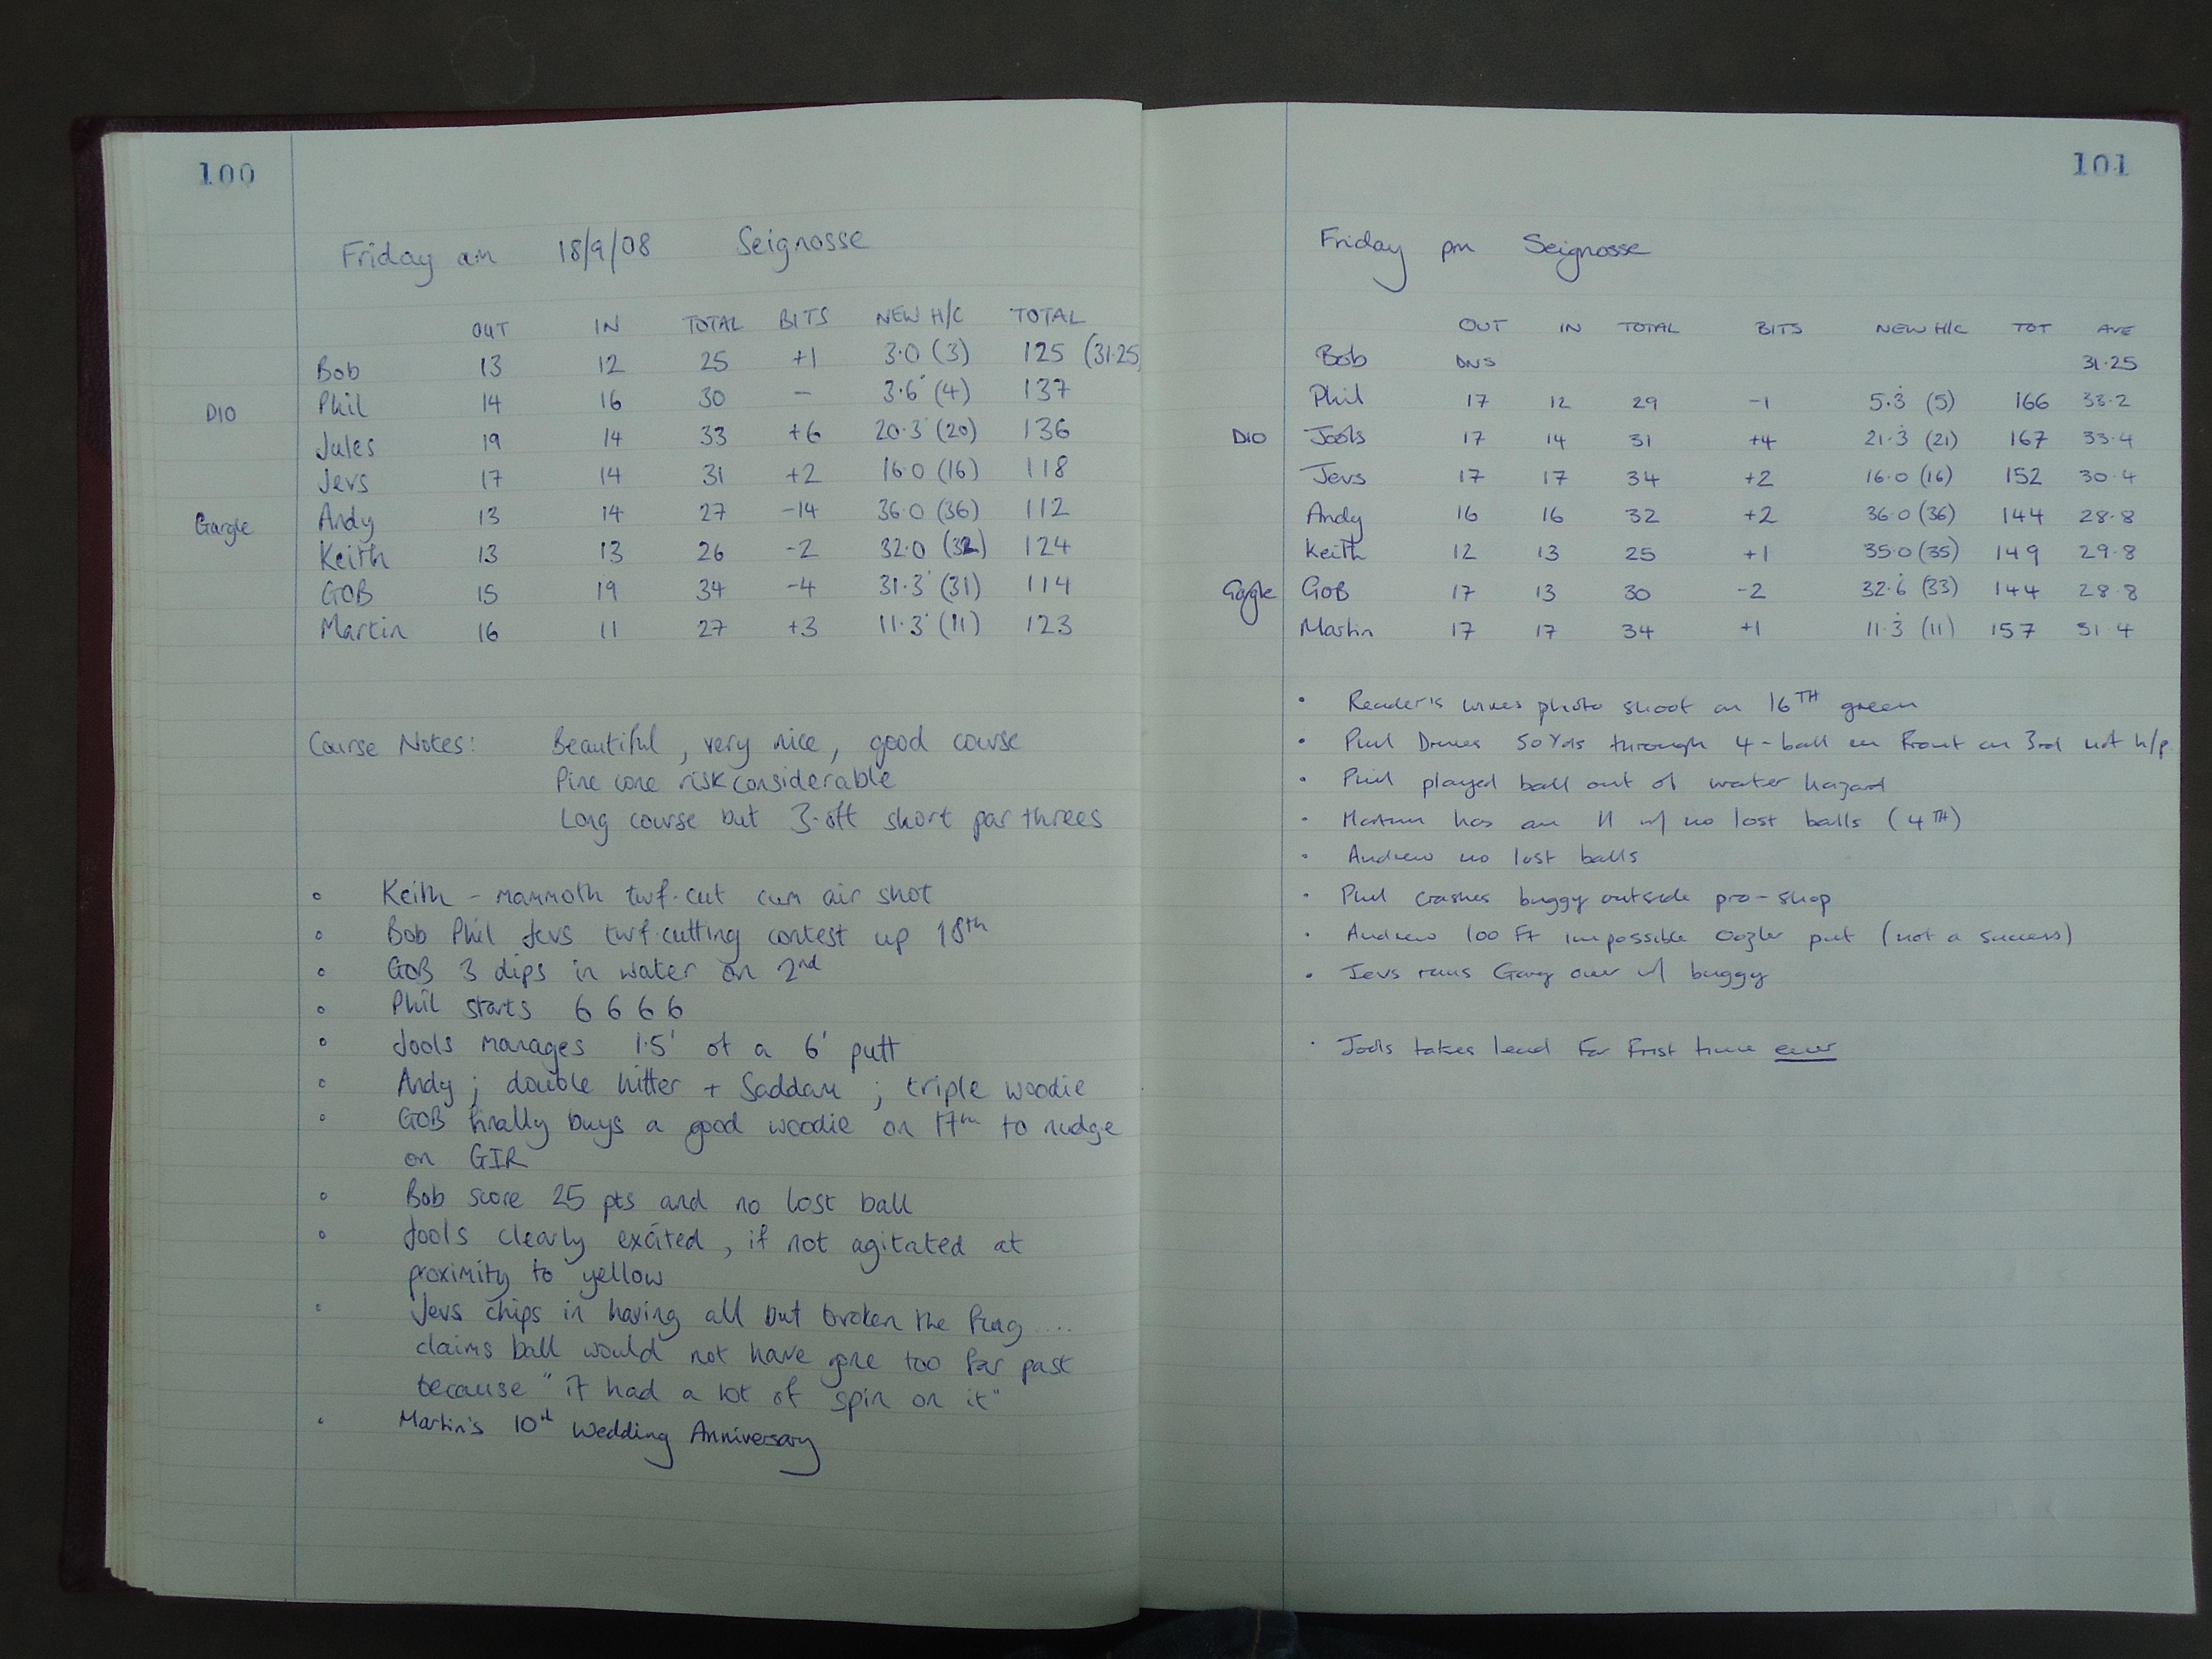 100
Friday am 18/9/08 Seignosse
OUT IN TOTAL BITS NEW H/C TOTAL
Bob 13 12 25 +1 3.0 (3) 125 (31.25
DIO Phil 14 16 30 - 3.6 (4) 137
Jules 19 14 33 +6 20.3 (20) 136
Jevs 17 14 31 +2 16.0 (16) 118
Gargle Andy 13 14 27 -14 36.0 (36) 112
Keith 13 13 26 -2 32.0 (32) 124
GOB 15 19 34 -4 31.3 (31) 114
Martin 16 11 27 +3 11.3 (11) 123
Course Notes: Beautiful, very nice, good course
Pine cone risk considerable
Long course but 3-off short par threes
Keith - mammoth turf-cut cum air shot
Bob Phil Jevs turf-cutting contest up 18th
GOB 3 dips in water on 2nd
Phil starts 6 6 6 6
Jools manages 1.5' of a 6' putt
Andy; double hitter + Saddam; triple woodie
GOB finally buys a good woodie on 17th to nudge
on GIR
Bob score 25 pts and no lost ball
Jools clearly excited, if not agitated at
proximity to yellow
Jevs chips in having all but broken the flag....
claims ball would not have gone too far past
because "it had a lot of spin on it"
Martin's 10th Wedding Anniversary
101
Friday pm Seignosse
OUT IN TOTAL BITS NEW H/C TOT AVE
Bob DNS 31.25
Phil 17 12 29 -1 5.3 (5) 166 33.2
DIO Jools 17 14 31 +4 21.3 (21) 167 33.4
Jevs 17 17 34 +2 16.0 (16) 152 30.4
Andy 16 16 32 +2 36.0 (36) 144 28.8
Keith 12 13 25 +1 35.0 (35) 149 29.8
Gargle GOB 17 13 30 -2 32.6 (33) 144 28.8
Martin 17 17 34 +1 11.3 (11) 157 31.4
Reader's wives photo shoot on 16TH green
Phil Drives 50 Yds through 4-ball in front on 3rd not h/p
Phil played ball out of water hazard
Martin has an 11 w/ no lost balls (4TH)
Andrew no lost balls
Phil crashes buggy outside pro-shop
Andrew 100 Ft impossible putt (not a success)
Jevs runs Gary over w/ buggy
Jools takes lead for first time ever